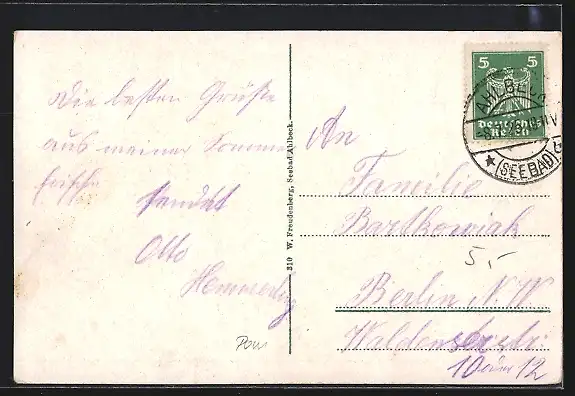 Die besten Grüße
aus meiner Sommer
frische sendet
Otto
Hemmerling
310 W. Freudenberg, Seebad Ahlbeck.
An
Familie
Bartkowiak
Berlin N.W
Waldenserstr.
10 oder 12
5,-
Pom
5 5
Deutsches
Reich
(SEEBAD)